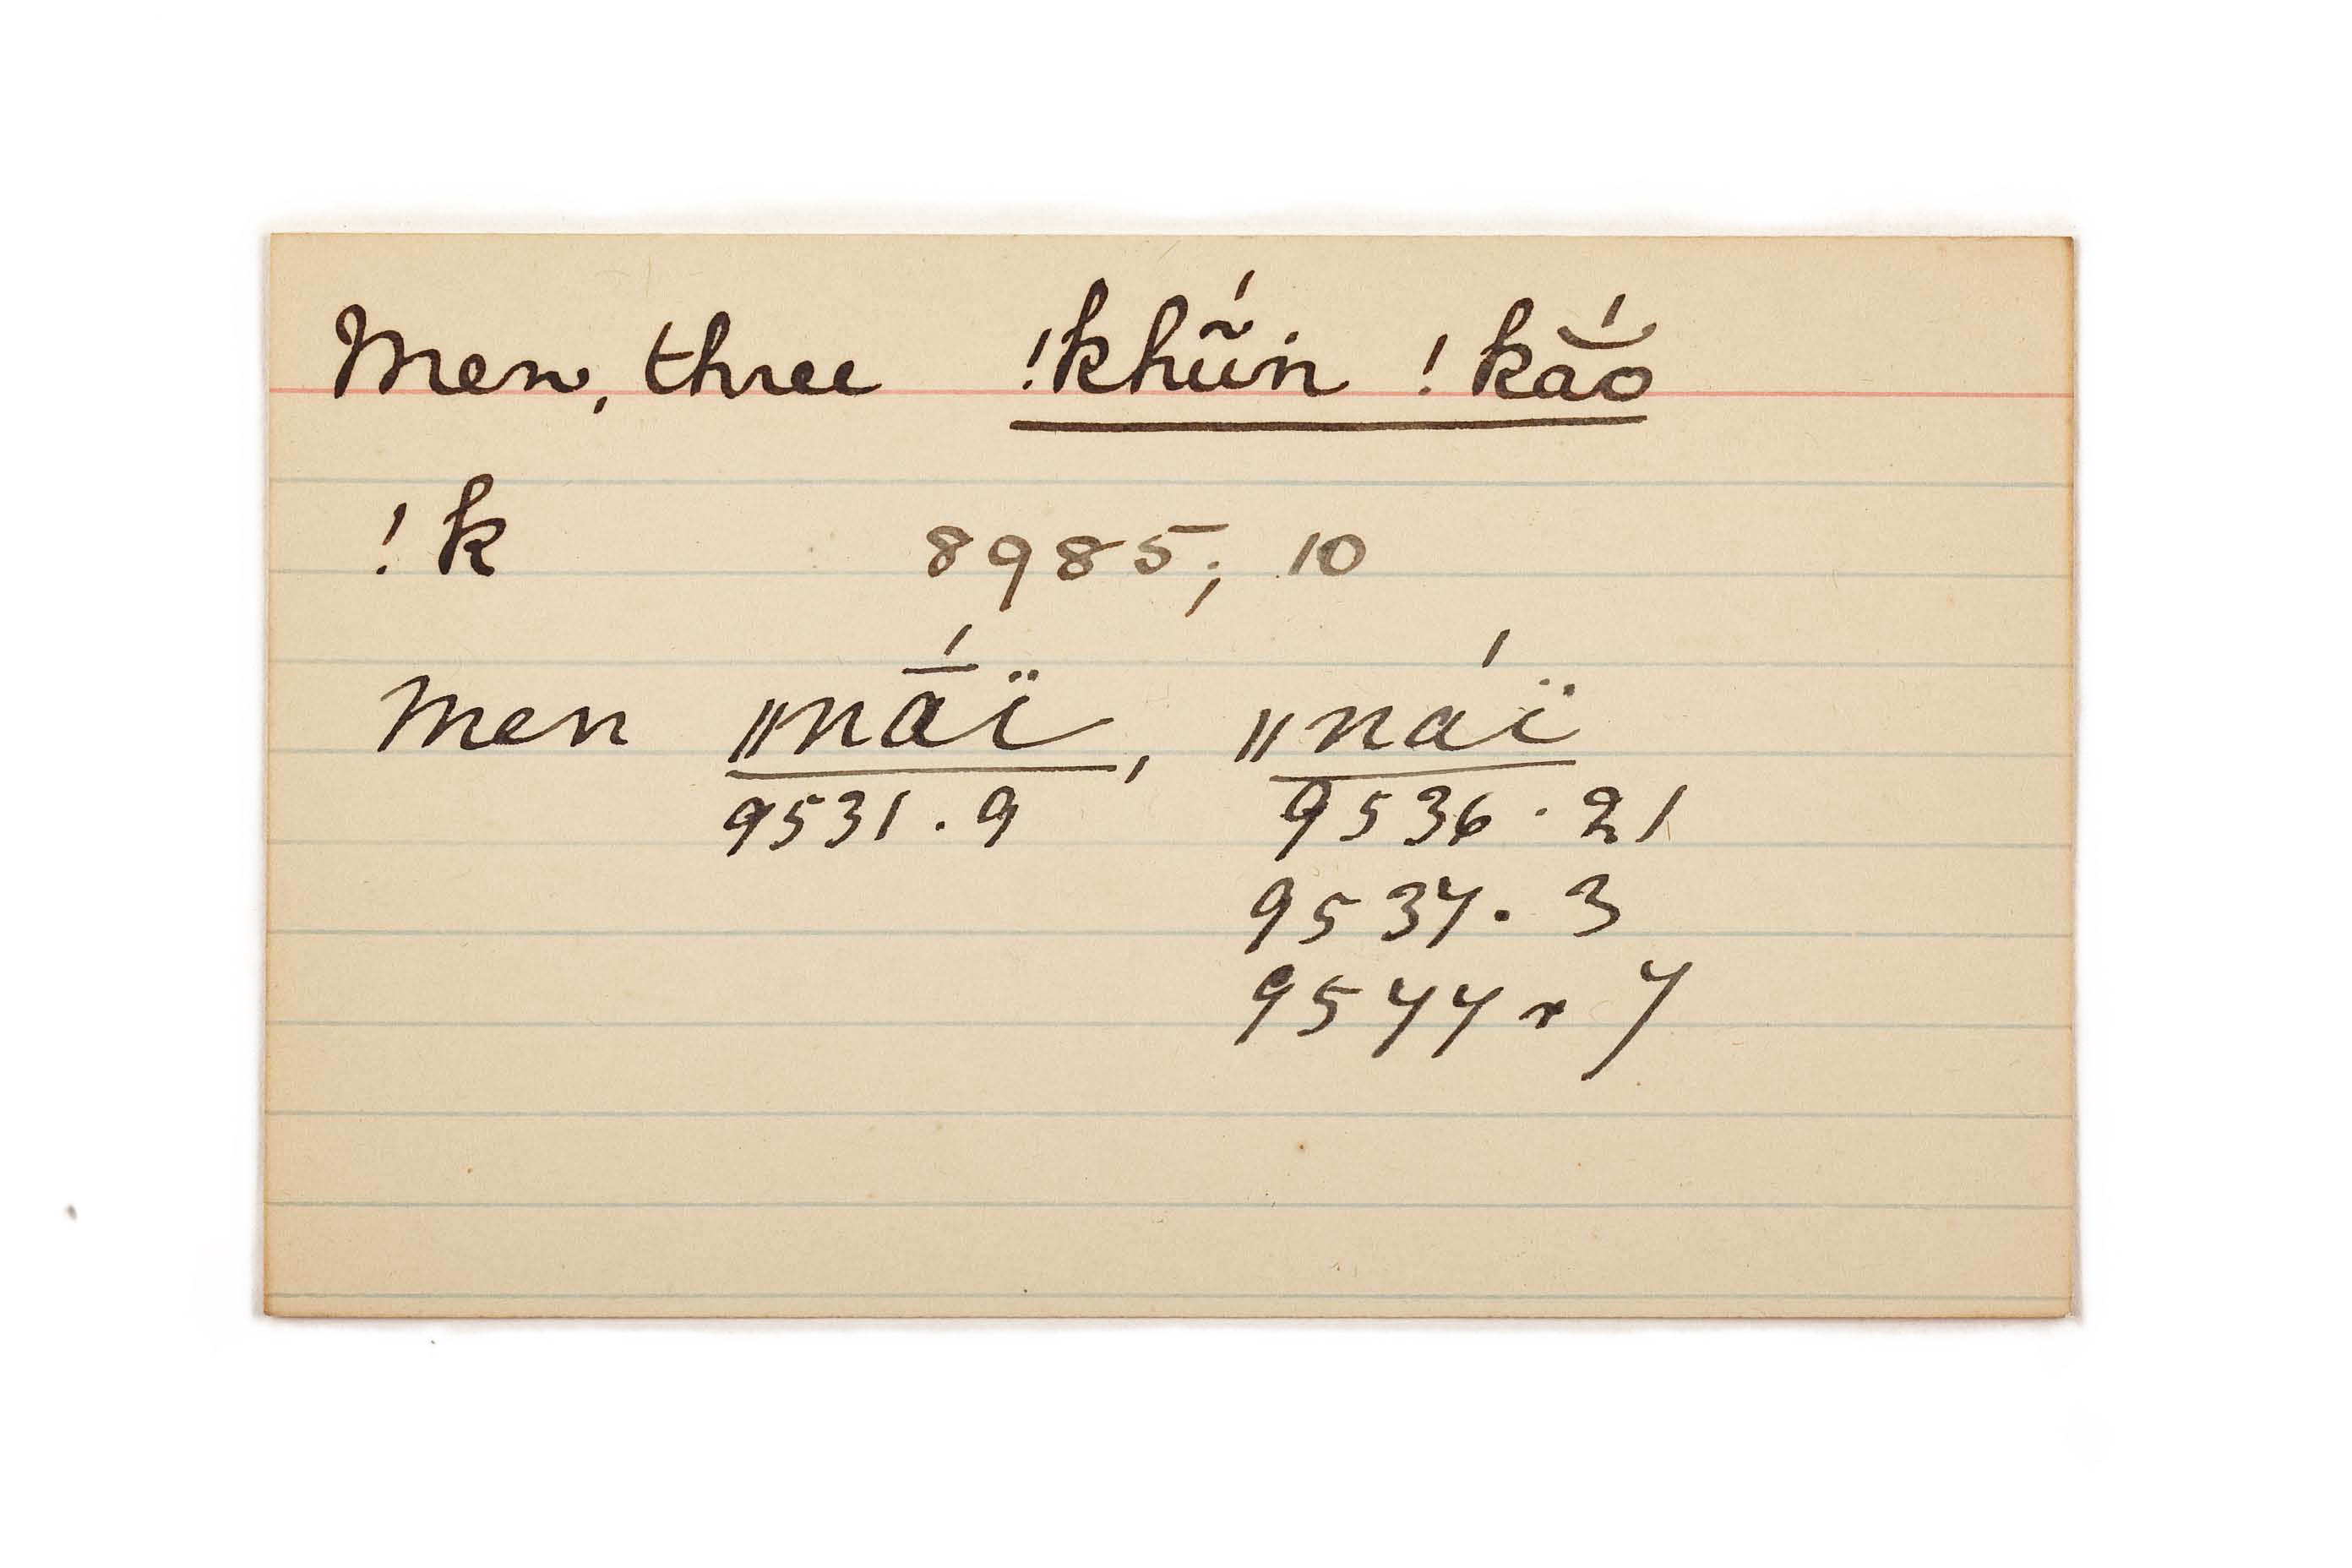 Men, three !khṹn !kắo
!k 8985; 10
Men ǁnā́ï, ǁnáï
9531.9 9536.21
9537.3
9544.7